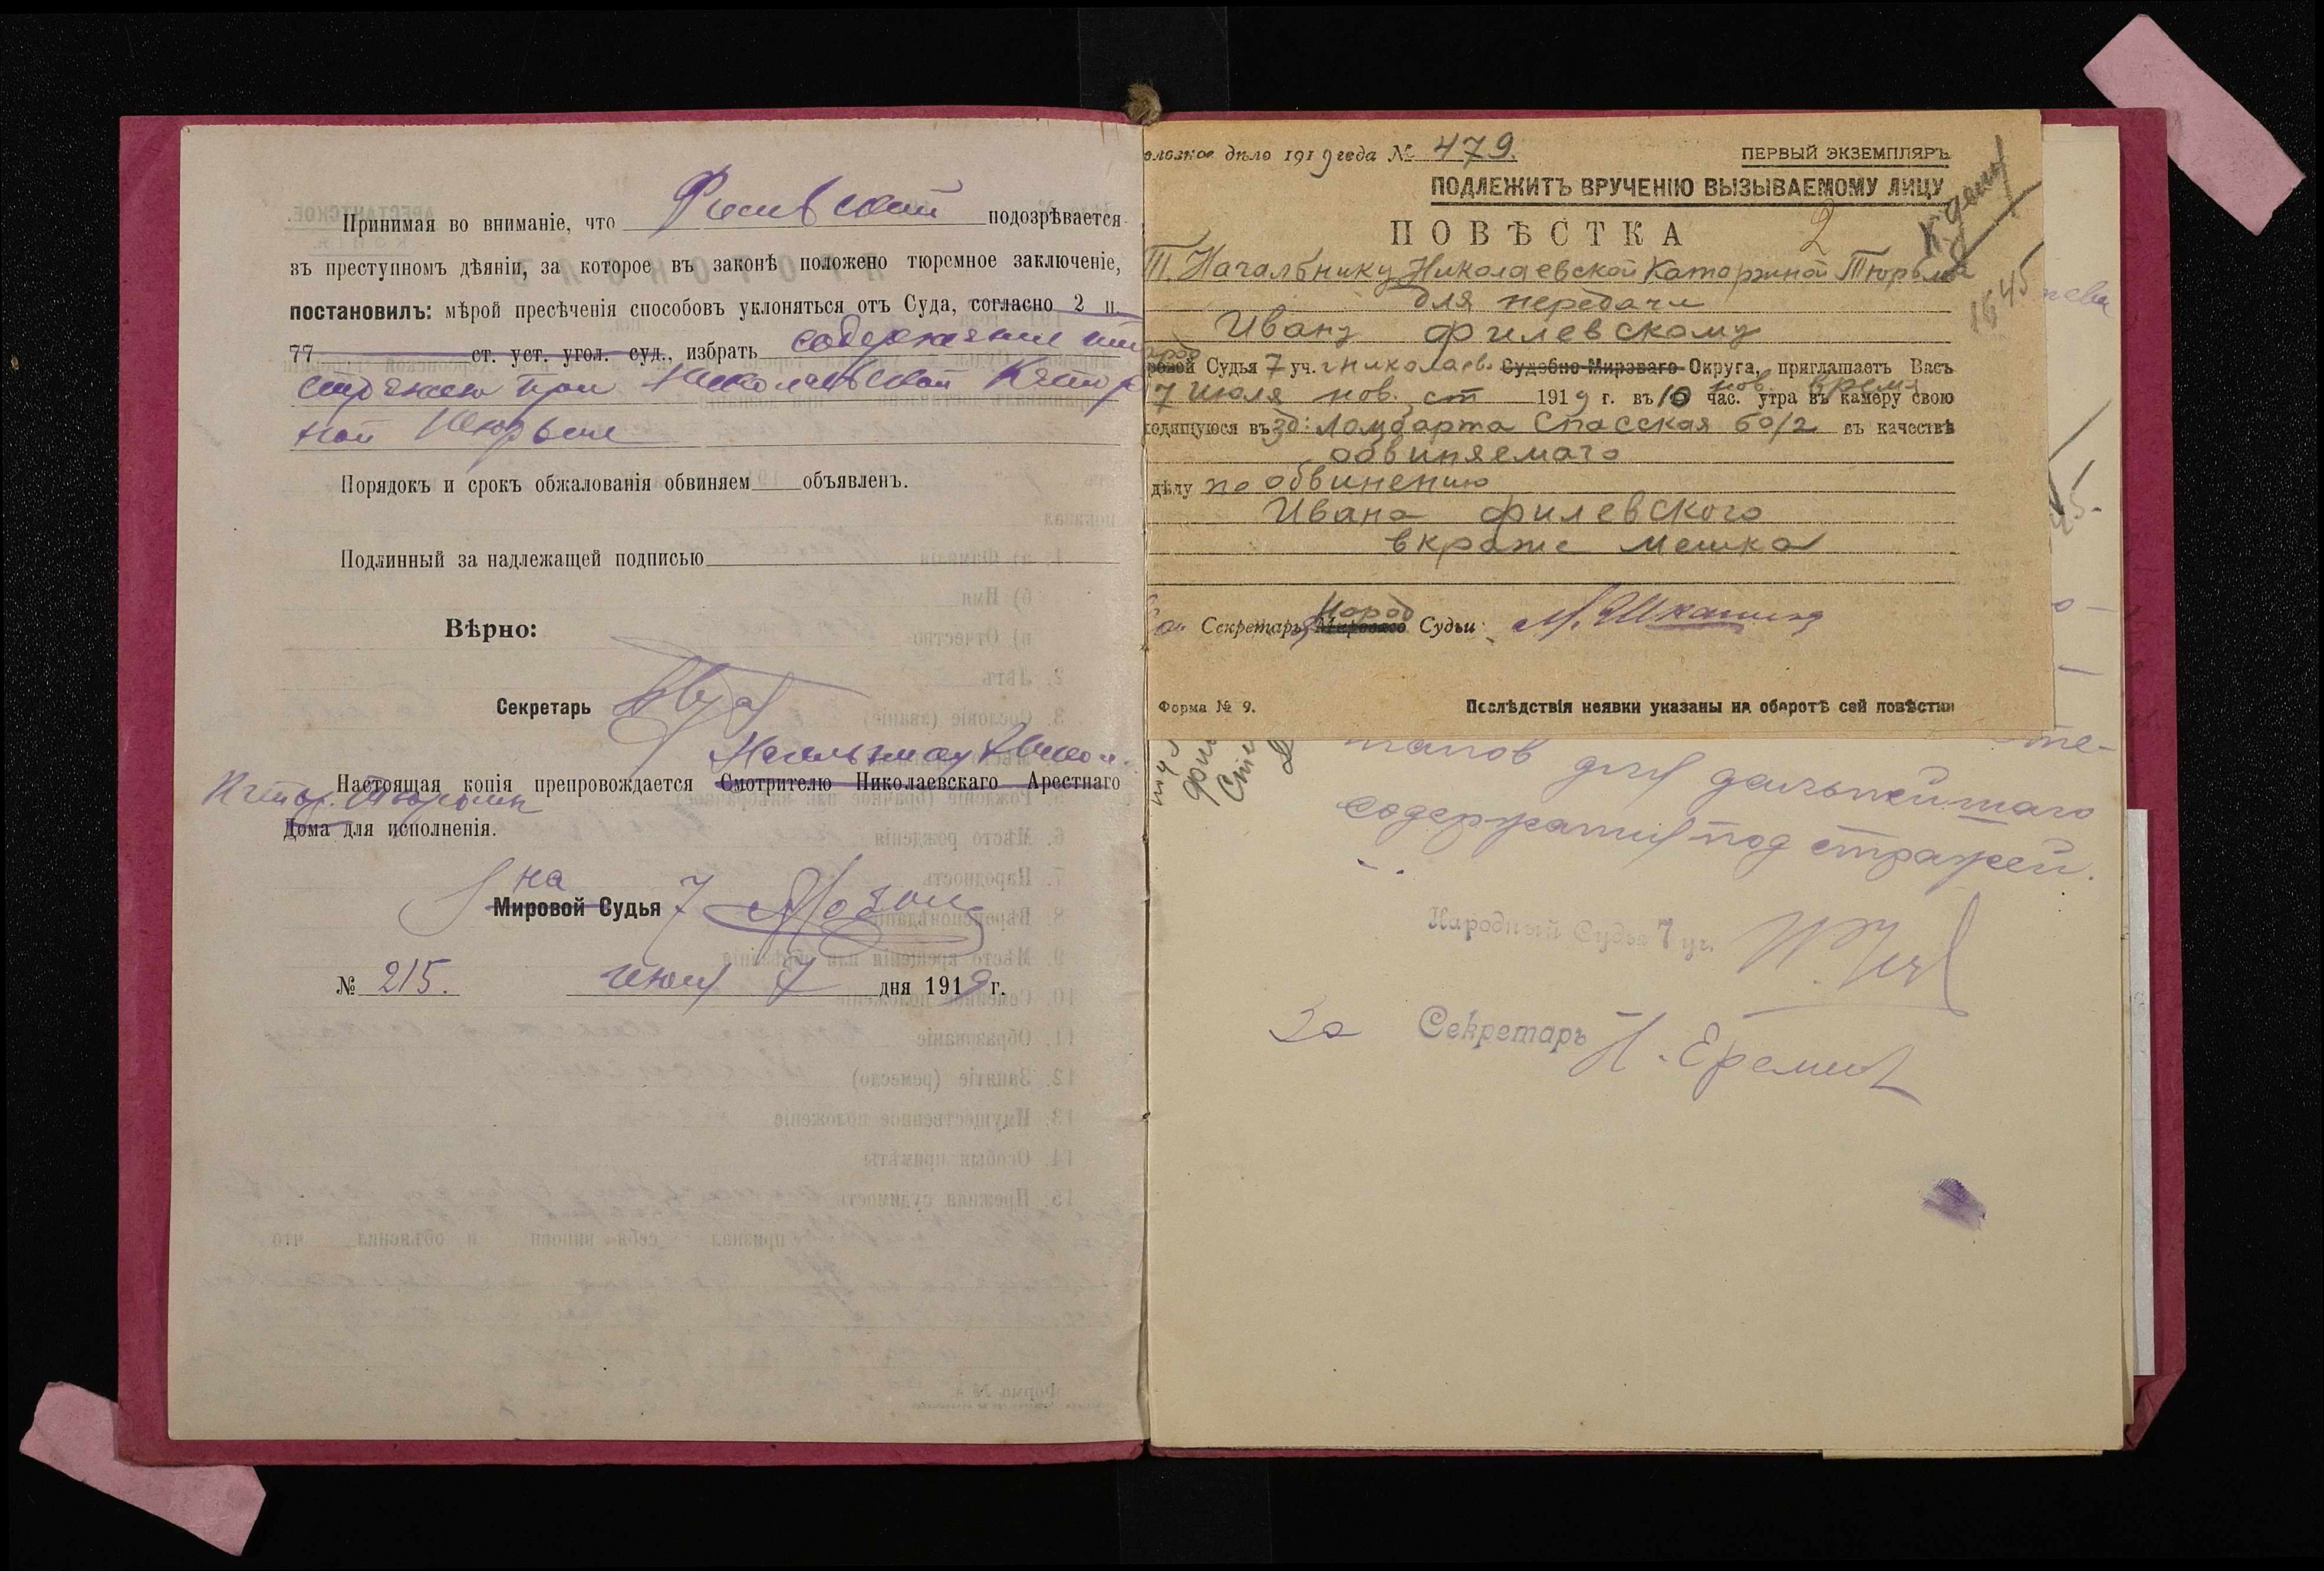 Принимая во вниманіе, что Филевский подозрѣвается
въ преступномъ дѣяніи, за которое въ законѣ положено тюремное заключеніе,
постановилъ: мѣрой пресѣченія способовъ уклоняться отъ Суда, согласно 2 п.
77 ст. уст. угол. суд., избрать содержание под
стражею при Николаевской Катор
ной Тюрьме
Порядокъ и срокъ обжалованія обвиняем объявленъ.
Подлинный за надлежащей подписью
Вѣрно:
Секретарь
Начальнику Никол.
Настоящая копія препровождается Смотрителю Николаевскаго Арестнаго
Катор. Тюрьмы
Дома для исполненія.
на
Мировой Судья 7
№ 215. июня 7 дня 1919 г.
дѣло 1919 года № 479.
ПЕРВЫЙ ЭКЗЕМПЛЯРЪ
ПОДЛЕЖИТЪ ВРУЧЕНІЮ ВЫЗЫВАЕМОМУ ЛИЦУ
К делу
ПОВѢСТКА
2
Т. Начальнику Николаевской Каторжной Тюрьмы
1645
для передачи
Ивану Филевскому
Судья 7 уч. г Николаев. Судебно-Мироваго Округа, приглашаетъ Васъ
нов. время
7 Июля нов. ст 1919 г. въ 10 час. утра въ камеру свою
одящуюся въ зд: Ломбарта Спасская 60/2 въ качествѣ
обвиняемаго
дѣлу по обвинению
Ивана Филевского
в краже мешка
Народ
Секретарь Мирового Судьи
Форма № 9.
Послѣдствія неявки указаны на оборотѣ сей повѣстки
для дальнейшаго
содержания под стражей.
Народный Судья 7 уч.
За Секретарь Н. Еремин